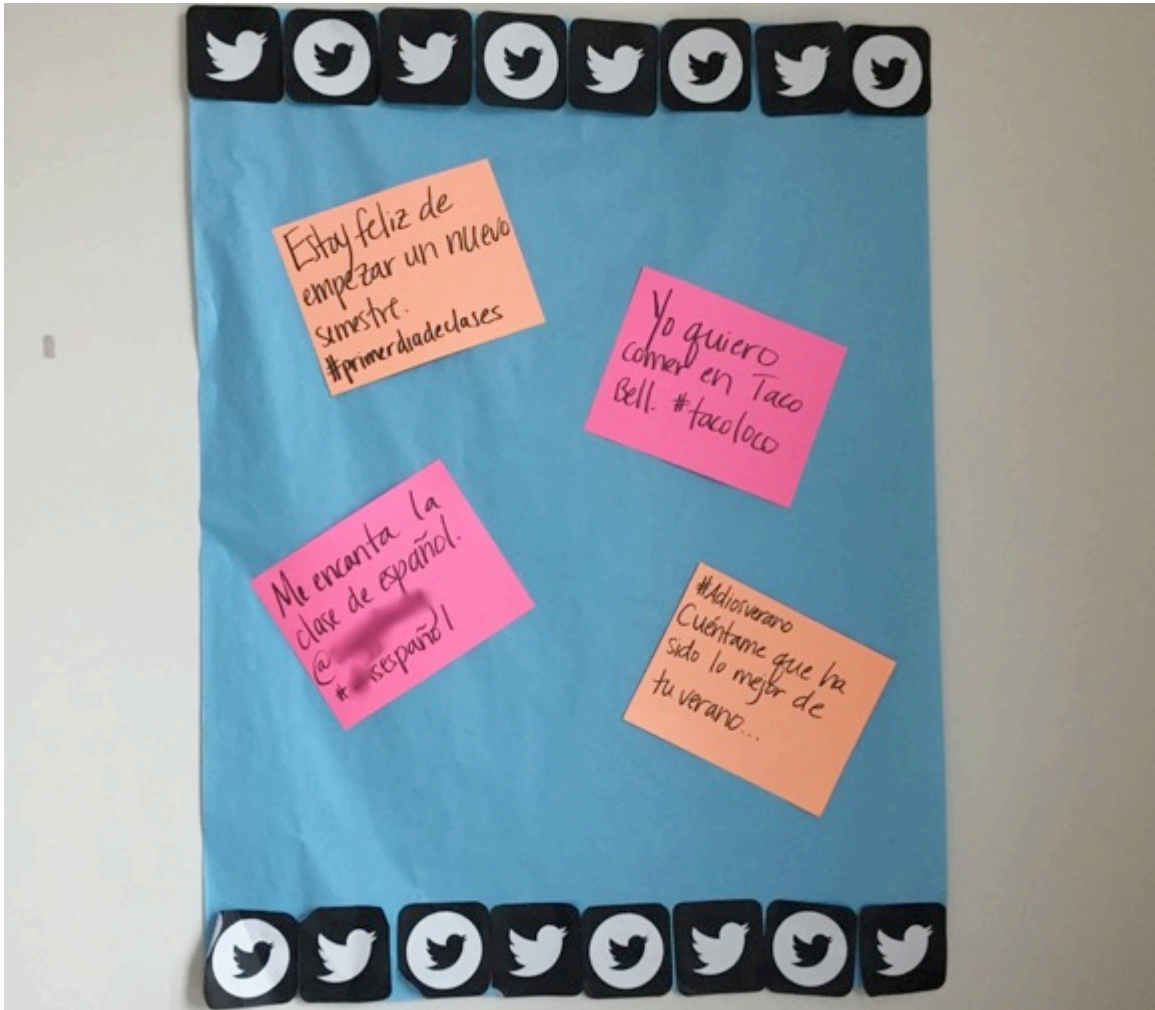 Estoy feliz de
empezar un nuevo
semestre.
#primerdiadeclases
Yo quiero
comer en Taco
Bell. #tacoloco
Me encanta la
clase de español.
@
#sespañol
#Adiosverano
Cuéntame que ha
sido lo mejor de
tu verano...